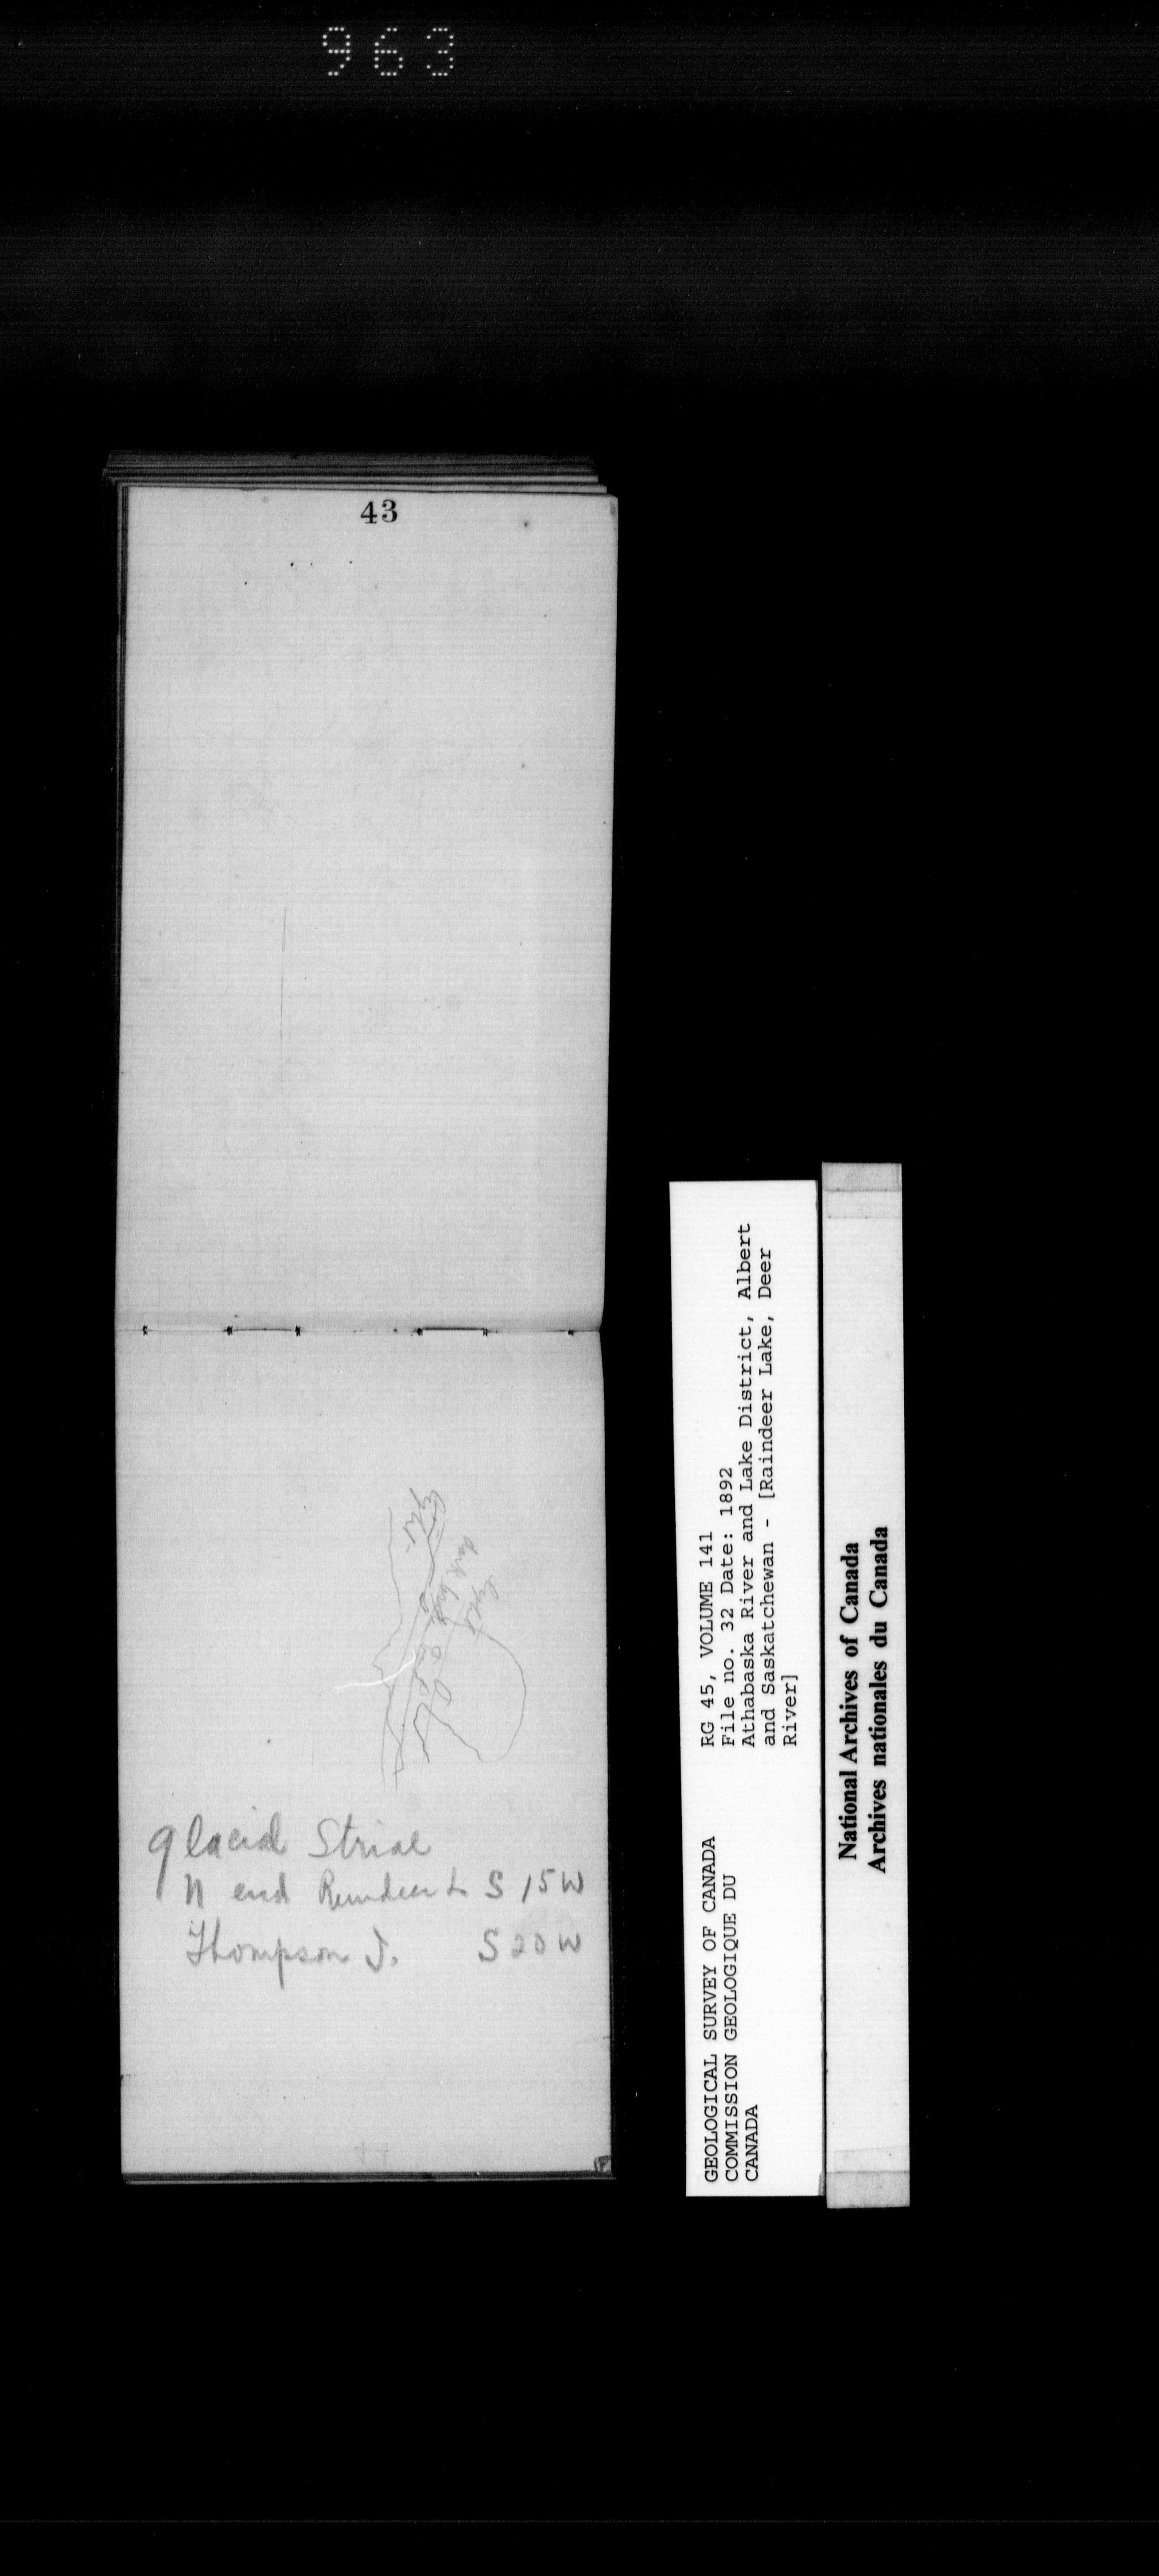 963
43
Glacial Striae
N end Reindeer L S 15 W
Thompson I. S 20 W
GEOLOGICAL SURVEY OF CANADA
COMMISSION GEOLOGIQUE DU
CANADA
RG 45, VOLUME 141
File no. 32 Date: 1892
Athabaska River and Lake District, Albert
and Saskatchewan - [Raindeer Lake, Deer
River]
National Archives of Canada
Archives nationales du Canada